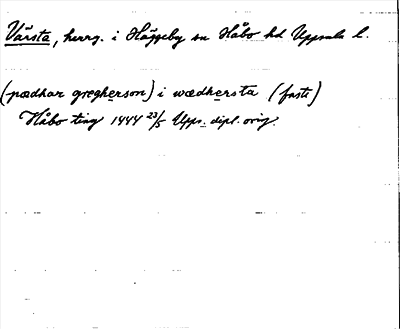 Värsta, herrg. i Häggeby sn Håbo hd Uppsala l.
(pædhar gregherson) i wædhersta (faste)
Håbo ting 1444 23/5 Upps. dipl. orig.